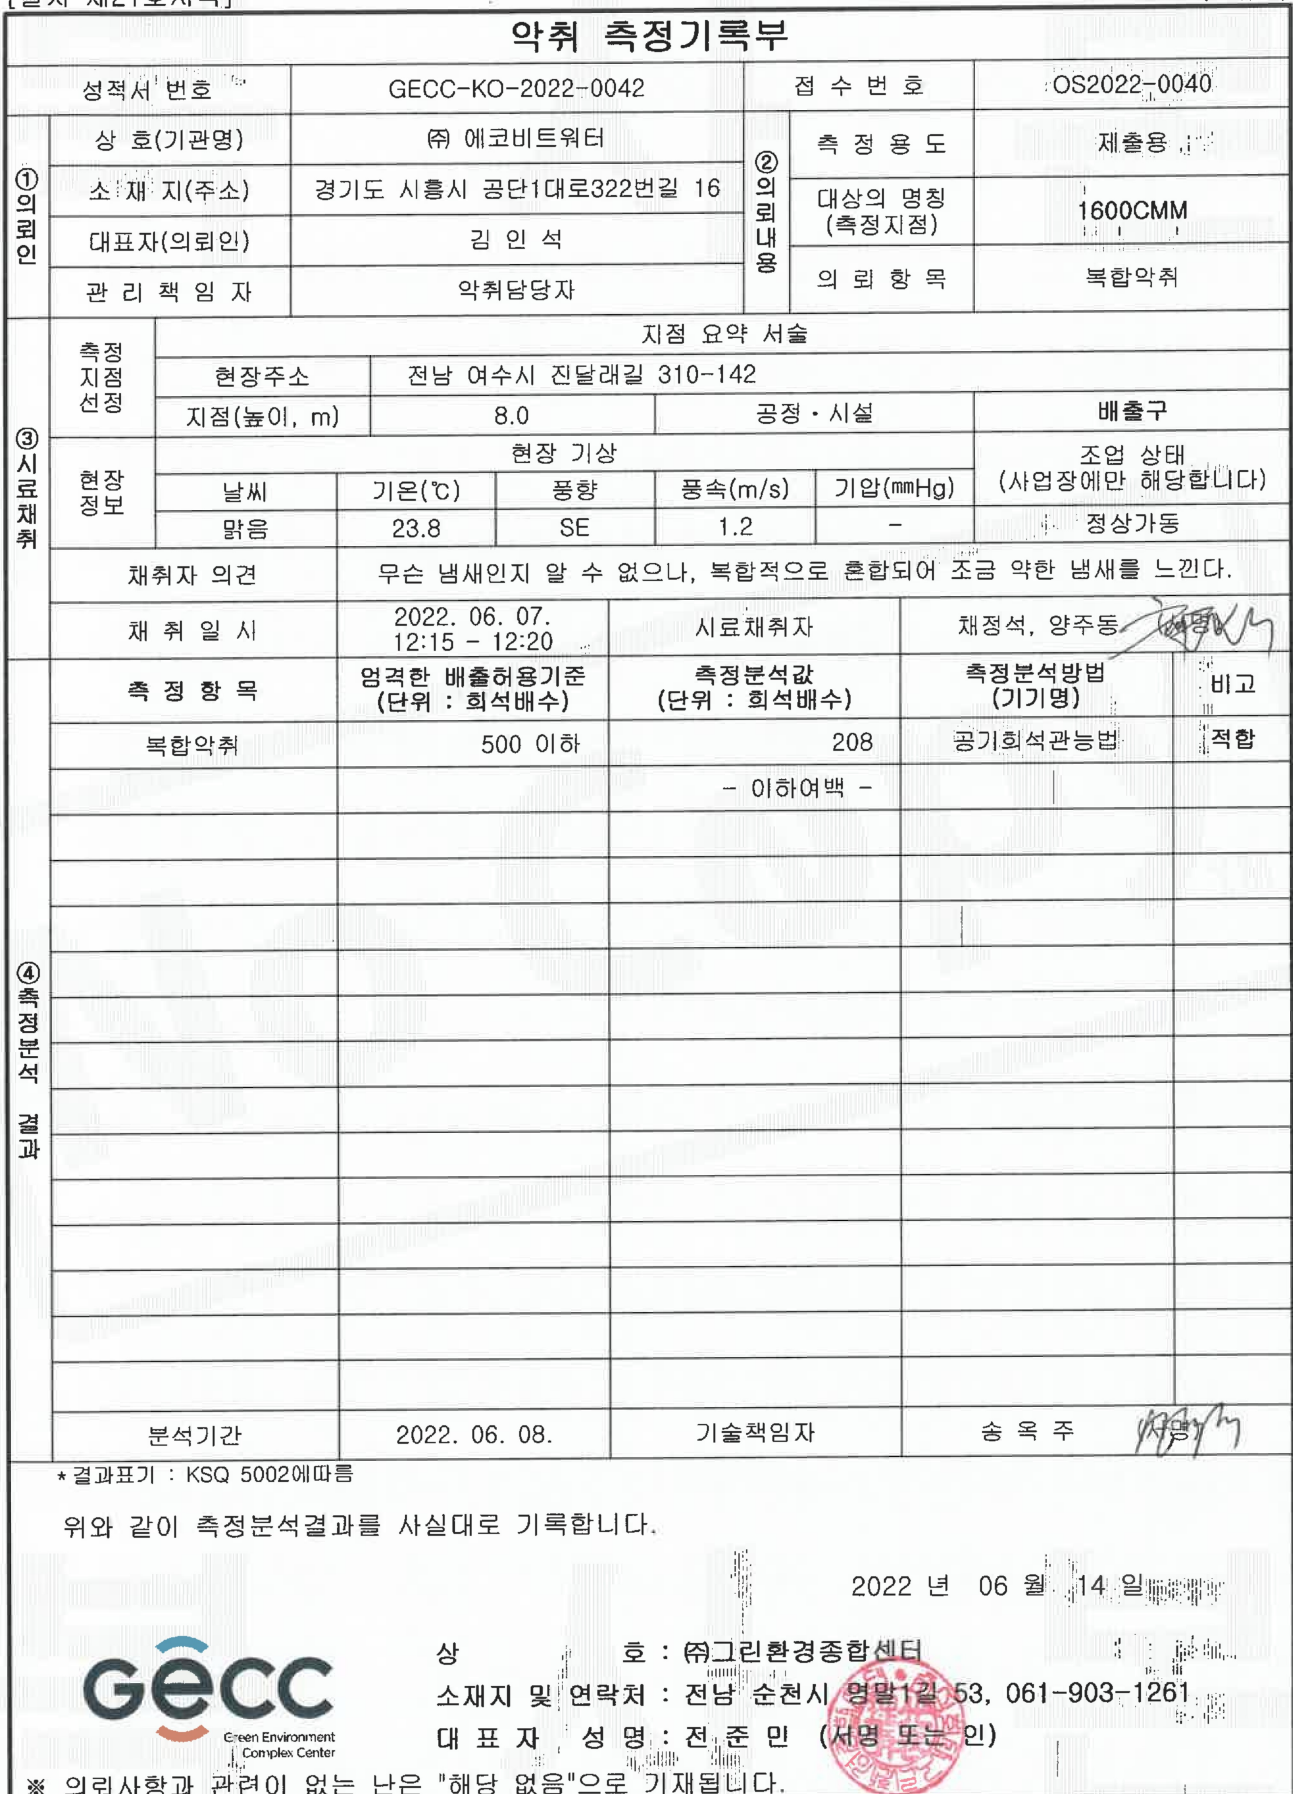 악취 측정기록부
성적서 번호 GECC-KO-2022-0042 접 수 번 호 OS2022-0040
①의뢰인
상 호(기관명) ㈜ 에코비트워터
소 재 지(주소) 경기도 시흥시 공단1대로322번길 16
대표자(의뢰인) 김 인 석
관 리 책 임 자 악취담당자
②의뢰내용
측 정 용 도 제출용
대상의 명칭 (측정지점) 1600CMM
의 뢰 항 목 복합악취
③시료채취
측정 지점 선정
지점 요약 서술
현장주소 전남 여수시 진달래길 310-142
지점(높이, m) 8.0 공정・시설 배출구
현장 정보
현장 기상 조업 상태 (사업장에만 해당합니다)
날씨 기온(℃) 풍향 풍속(m/s) 기압(㎜Hg)
맑음 23.8 SE 1.2 - 정상가동
채취자 의견 무슨 냄새인지 알 수 없으나, 복합적으로 혼합되어 조금 약한 냄새를 느낀다.
채 취 일 시 2022. 06. 07. 12:15 - 12:20 시료채취자 채정석, 양주동
④측정분석 결과
측 정 항 목 엄격한 배출허용기준 (단위 : 희석배수) 측정분석값 (단위 : 희석배수) 측정분석방법 (기기명) 비고
복합악취 500 이하 208 공기희석관능법 적합
- 이하여백 -
분석기간 2022. 06. 08. 기술책임자 송 옥 주
*결과표기 : KSQ 5002에따름
위와 같이 측정분석결과를 사실대로 기록합니다.
2022 년 06 월 14 일
GECC
Green Environment
Complex Center
상 호 : ㈜그린환경종합센터
소재지 및 연락처 : 전남 순천시 명말1길 53, 061-903-1261
대 표 자 성 명 : 전 준 민 (서명 또는 인)
※ 의뢰사항과 관련이 없는 난은 "해당 없음"으로 기재됩니다.